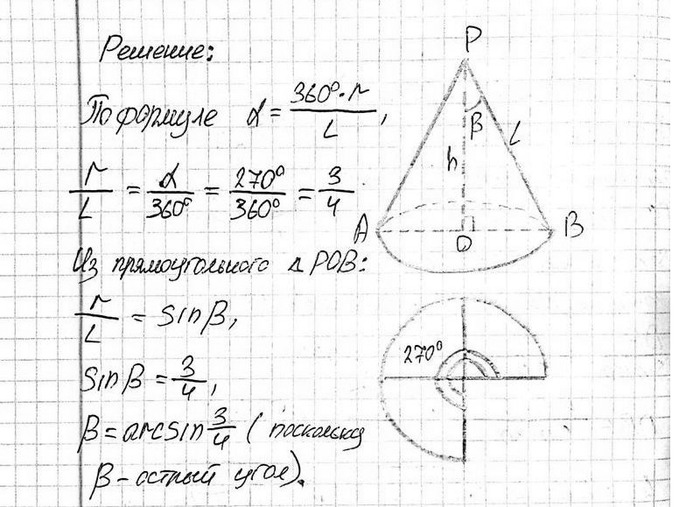 Решение:
По формуле α = 360°·r / L,
r/L = α/360° = 270°/360° = 3/4
Из прямоугольного Δ POB:
r/L = sin β,
sin β = 3/4,
β = arcsin 3/4 (поскольку
β – острый угол).
P
β
L
h
A
O
B
270°